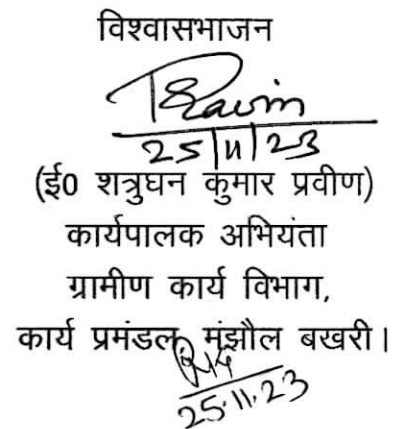 विश्वासभाजन
25/11/23
(ई0 शत्रुघन कुमार प्रवीण)
कार्यपालक अभियंता
ग्रामीण कार्य विभाग,
कार्य प्रमंडल, मंझौल बखरी।
25.11.23